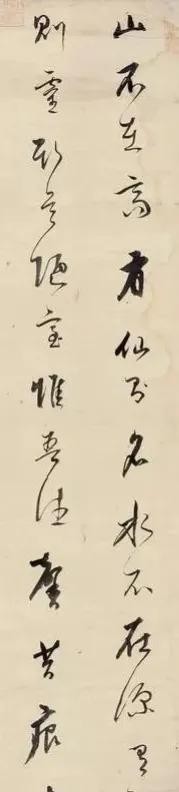 山不在高有仙則名水不在深有
則靈斯是陋室惟吾德馨苔痕